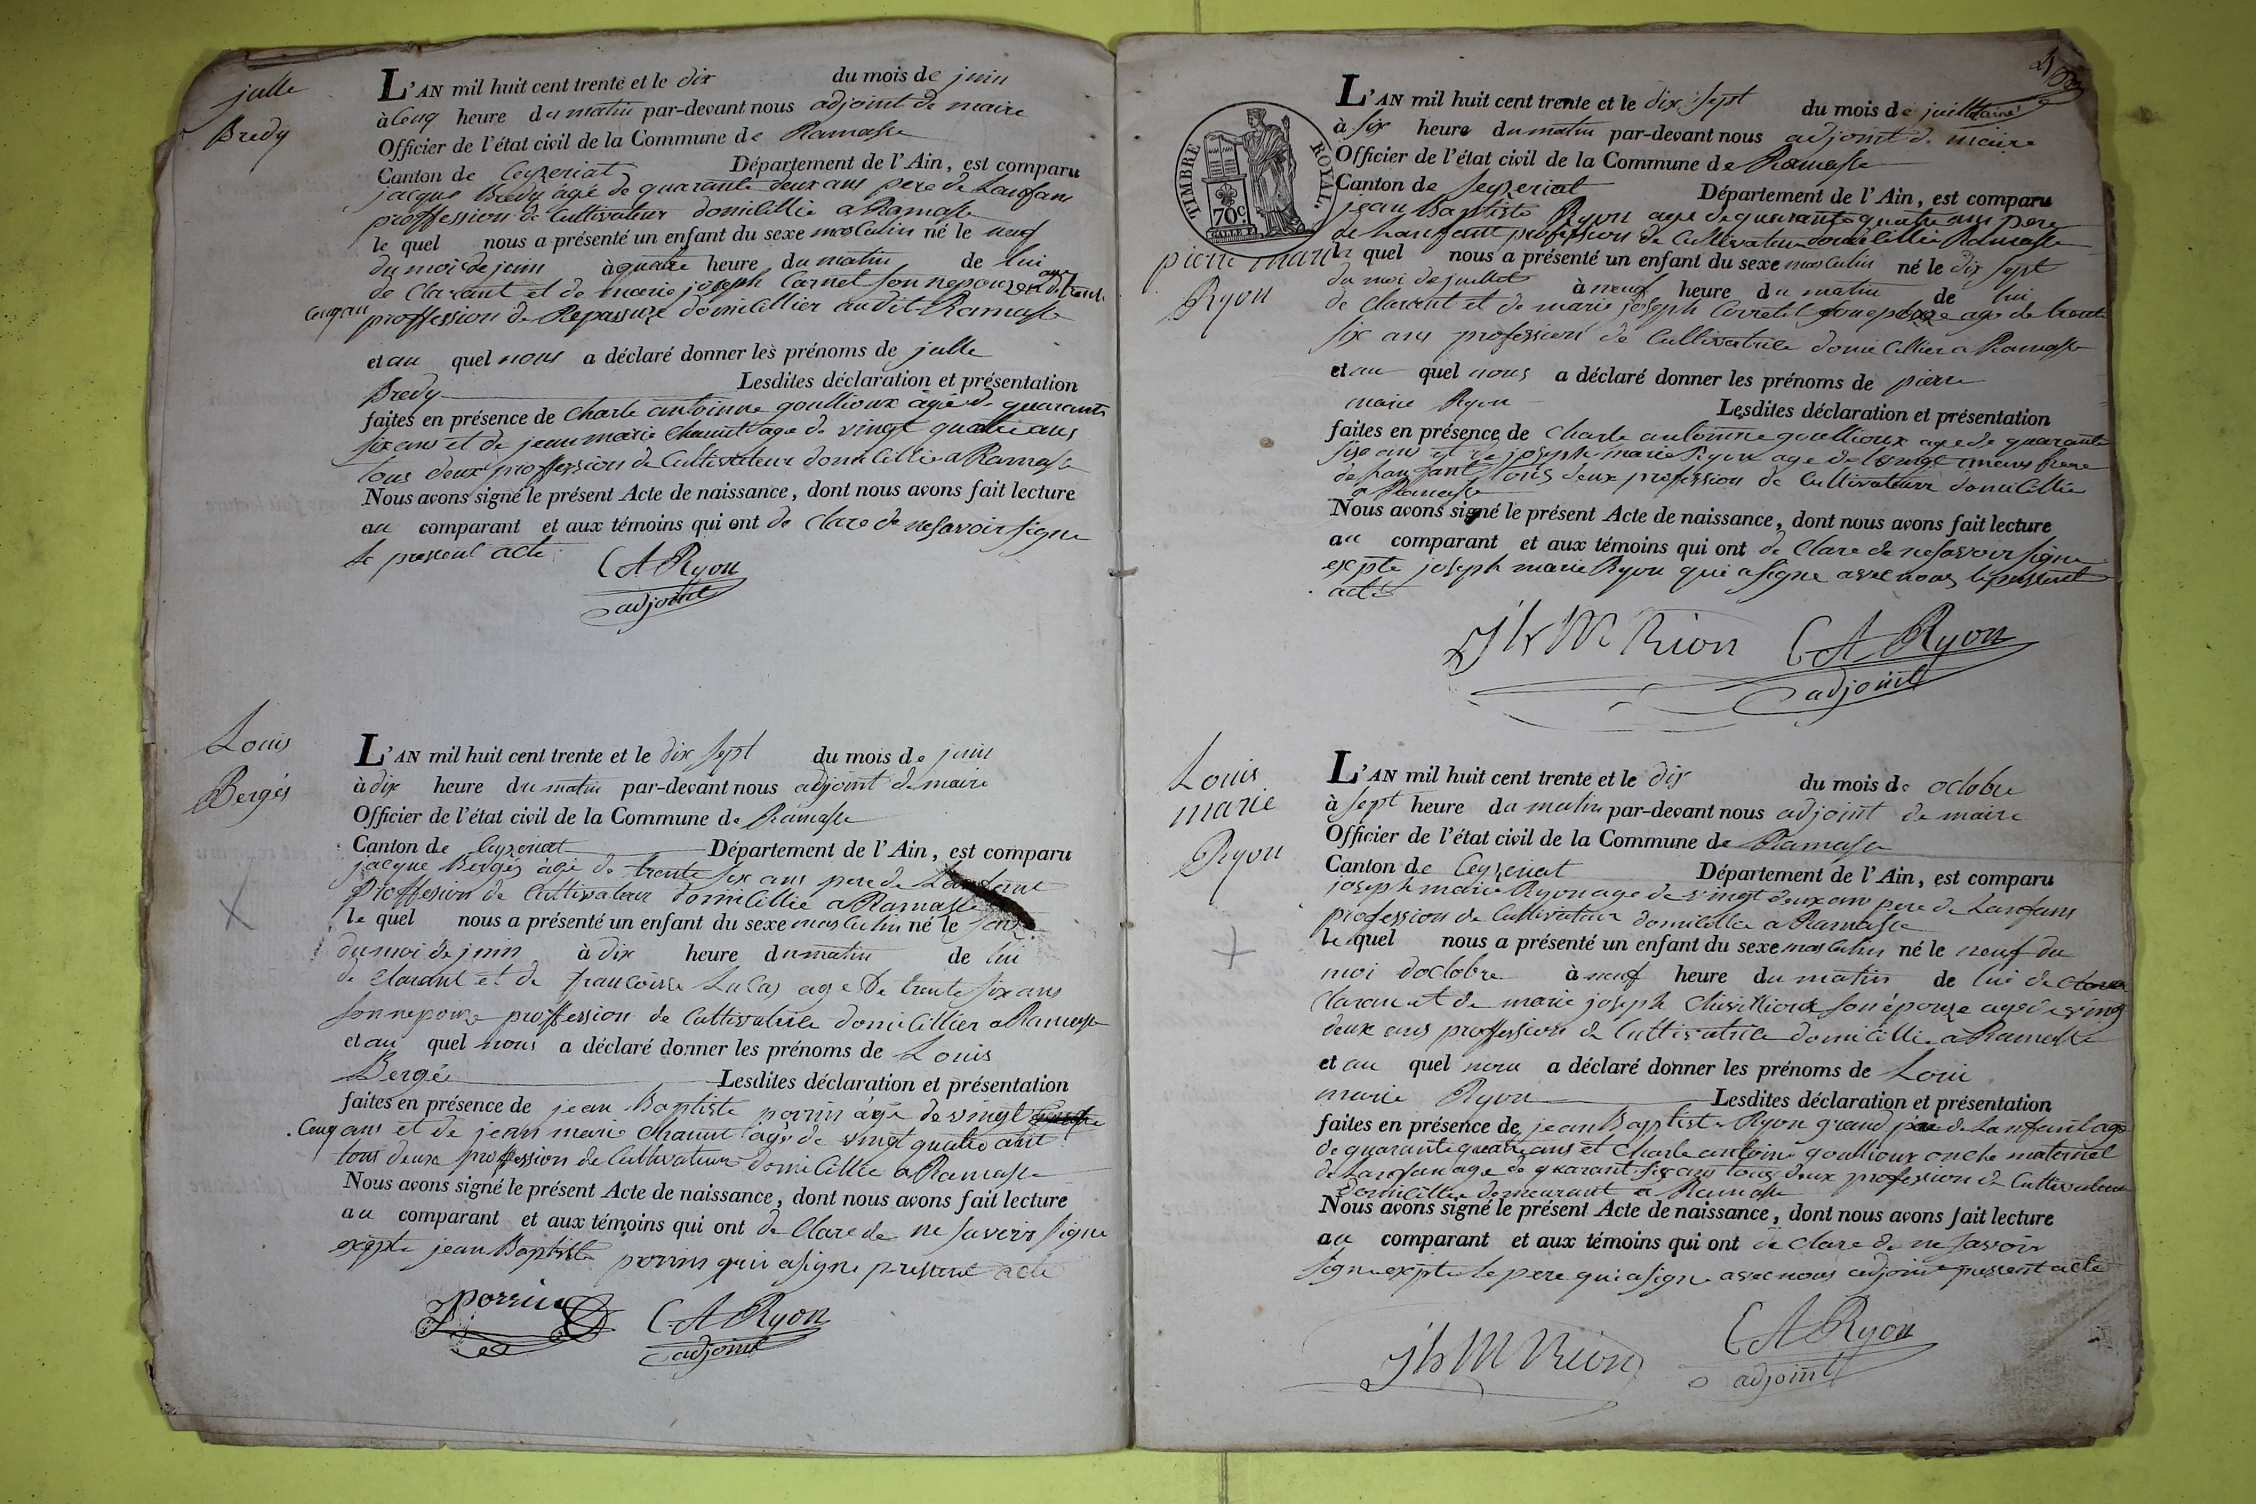 julle
Bredy
L'AN mil huit cent trente et le dix du mois de juin
à cenq heure du matin par-devant nous adjoint de maire
Officier de l'état civil de la Commune de Ramasse
Canton de Ceyzeriat Département de l'Ain, est comparu
jacque Bredy agé de quarante deux ans pere de Lanfans
proffession de Cultivateur domicillie a Ramasse
le quel nous a présenté un enfant du sexe masculin né le neuf
du moi de juin à quatre heure du matin de lui
de Clarant et de marie joseph Carnet son nepouze de trente
cenq an proffession de Repassuze domicillier audit Ramasse
et au quel nous a déclaré donner les prénoms de julle
Bredy Lesdites déclaration et présentation
faites en présence de Charle antoinne goullioux agé de quarante
six ans et de jean marie Chanut age de vingt quatre ans
tous deux proffession de Cultivateur domicillie a Ramasse
Nous avons signé le présent Acte de naissance, dont nous avons fait lecture
au comparant et aux témoins qui ont de clare de ne savoir signe
le present acte
CA Ryon
adjoint
Louis
Bergés
L'AN mil huit cent trente et le dix sept du mois de juin
à dix heure du matin par-devant nous adjoint de maire
Officier de l'état civil de la Commune de Ramasse
Canton de Ceyzeriat Département de l'Ain, est comparu
jacque Bergés agé de trente six ans pere de
proffession de Cultivateur domicillie a Ramasse
le quel nous a présenté un enfant du sexe masculin né le
du moi de juin à dix heure du matin de lui
de Clarant et de francoisse Lucas age de trente six ans
son nepouze proffession de Cultivatrice domicillier a Ramasse
et au quel nous a déclaré donner les prénoms de Louis
Bergé Lesdites déclaration et présentation
faites en présence de jean Baptiste porrin agé de vingt
Cenq ans et de jean marie Chanut agé de vingt quatre ans
tous deux proffession de Cultivateur domicillie a Ramasse
Nous avons signé le présent Acte de naissance, dont nous avons fait lecture
au comparant et aux témoins qui ont de clare de ne savoir signe
exepte jean Baptiste porrin qui a signe present acte
porrin
CA Ryon
adjoint
TIMBRE ROYAL.
70c.
pierre marie
Ryon
L'AN mil huit cent trente et le dix sept du mois de juillet
à six heure du matin par-devant nous adjoint de maire
Officier de l'état civil de la Commune de Ramasse
Canton de Seyzeriat Département de l'Ain, est comparu
jean Baptiste Ryon agé de quarante quatre ans pere
de Lanfant proffession de Cultivateur domicillie Ramasse
le quel nous a présenté un enfant du sexe masculin né le dix sept
du moi de juillet à neuf heure du matin de lui
de clarant et de marie joseph Corretel age de trente
six ans profession de Cultivatrice domicillier a Ramasse
et au quel nous a déclaré donner les prénoms de pierre
marie Ryon Lesdites déclaration et présentation
faites en présence de Charle antoinne goullioux age de quarante
six ans et de joseph marie Ryon age de vingt ans frere
de Lanfant tous deux profession de Cultivateur domicillie
a Ramasse
Nous avons signé le présent Acte de naissance, dont nous avons fait lecture
au comparant et aux témoins qui ont de clare de ne savoir signe
exepte joseph marie Ryon qui a signe avec nous le present
acte
Jh M Rion
CA Ryon
adjoint
Louis
marie
Ryon
L'AN mil huit cent trente et le dix du mois de octobre
à sept heure du matin par-devant nous adjoint de maire
Officier de l'état civil de la Commune de Ramasse
Canton de Ceyzeriat Département de l'Ain, est comparu
joseph marie Ryon age de vingt deux ans pere de Lanfans
profession de Cultivateur domicillie a Ramasse
le quel nous a présenté un enfant du sexe masculin né le neuf du
moi doctobre à neuf heure du matin de lui de
clarant et de marie joseph Chivillioux son épouze age de ving
deux ans proffession de Cultivatrice domicillie a Ramasse
et au quel nou a déclaré donner les prénoms de Loui
marie Ryon Lesdites déclaration et présentation
faites en présence de jean Baptiste Ryon grand pere de Lanfant age
de quarante quatre ans et Charle antoine goullioux oncle maternel
de Lanfan age de quarant six ans tous deux profession de Cultivateur
domicillie demeurant a Ramasse
Nous avons signé le présent Acte de naissance, dont nous avons fait lecture
au comparant et aux témoins qui ont de clare de ne savoir
signe exepte le pere qui a signe avec nous adjoint present acte
Jh M Rion
CA Ryon
adjoint